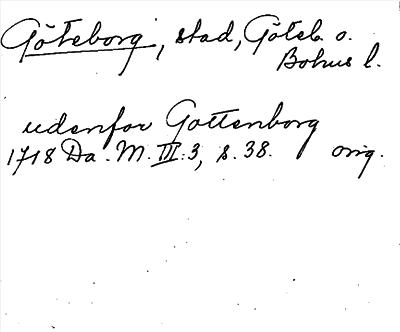 Göteborg, stad, Göteb. o.
Bohus l.
udenfor Gottenborg
1718 Da. M. III:3, s. 38. orig.